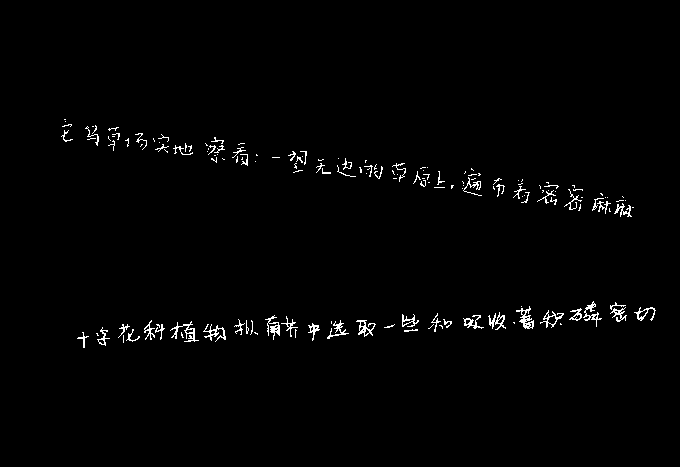 它马草场实地察看：一望无边的草原上，遍布着密密麻麻
十字花科植物拟南芥中选取一些和吸收、蓄积磷密切